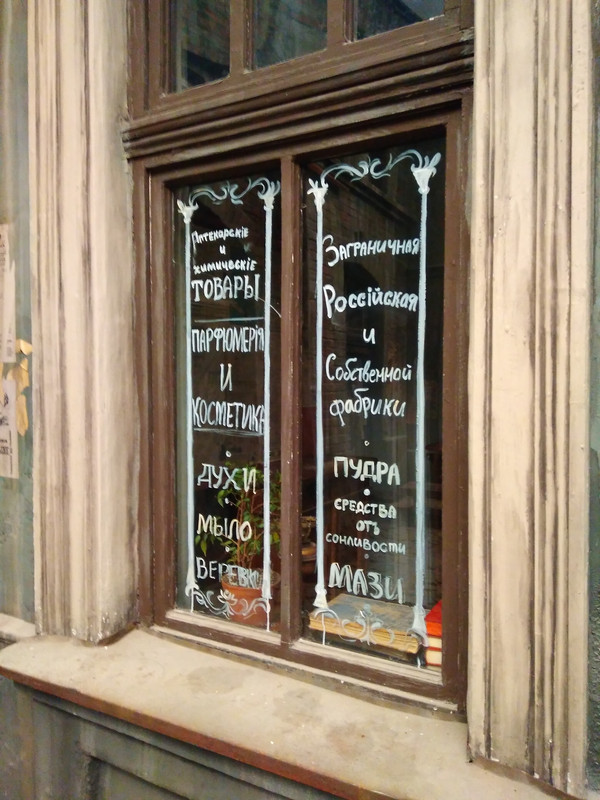 Аптекарскіе
и
химическіе
ТОВАРЫ
ПАРФЮМЕРІЯ
И
КОСМЕТИКА
ДУХИ
МЫЛО
ВЕРЕВКИ
Заграничная
Россійская
и
Собственной
фабрики
ПУДРА
СРЕДСТВА
ОТЪ
СОНЛИВОСТИ
МАЗИ